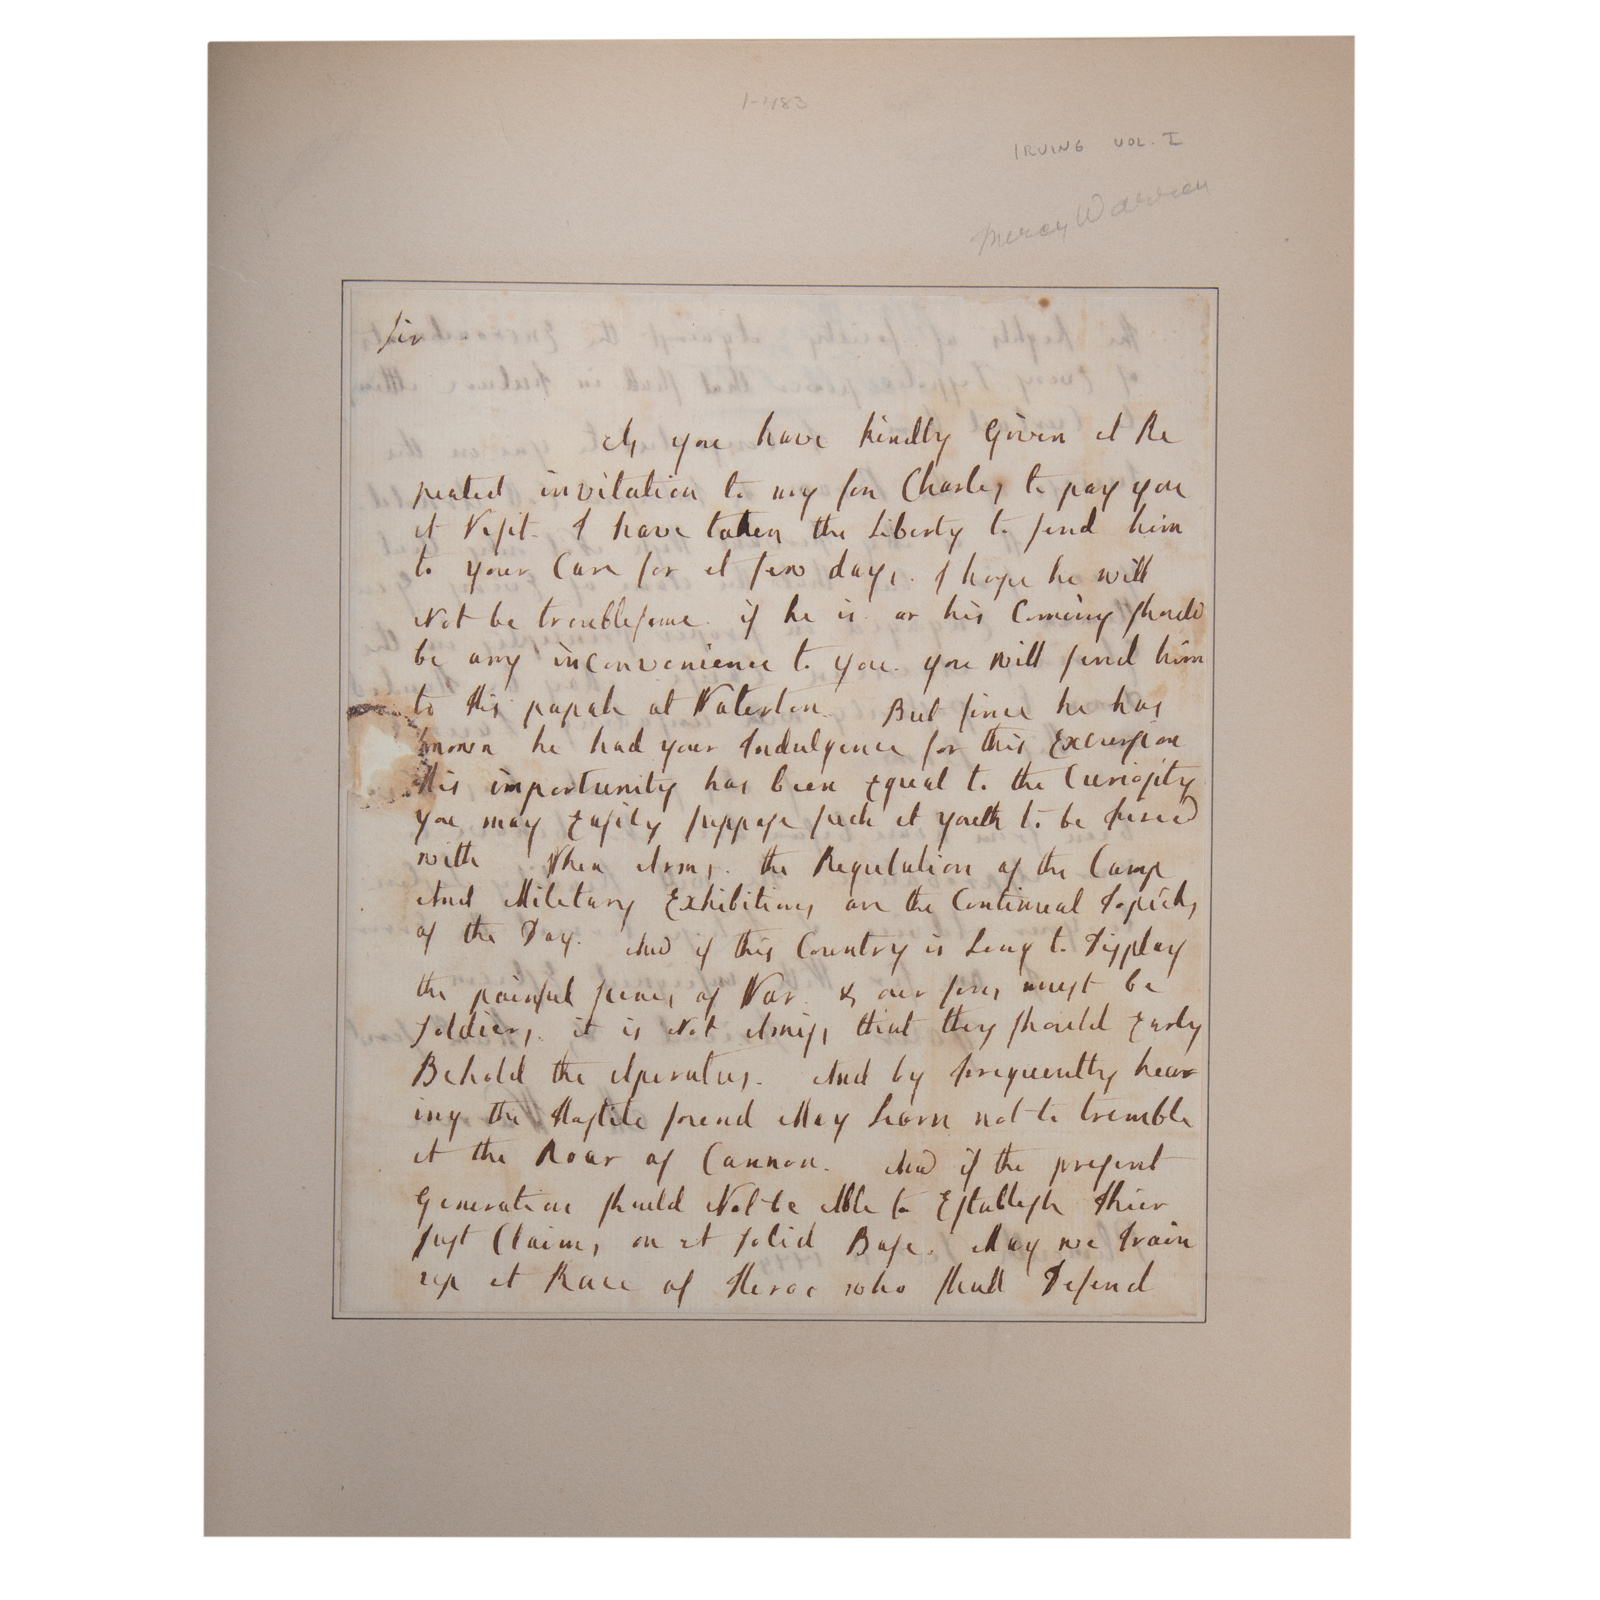 1-483
IRVING VOL. I
Mercy Warren
Sir
As you have kindly Given A Re
peated invitation to my son Charles to pay you
A Visit. I have taken the Liberty to send him
to your Care for A few days. I hope he will
Not be troublesome. if he is or his Coming should
be any inconvenience to you. you will send him
to His papah at Watertown. But since he has
known he had your Indulgence for this Excursion
His importunity has been Equal to the Curiosity
you may Easily suppose such A youth to be fired
with When Arms, the Regulation of the Camp
And Military Exhibitions are the Continual Topicks
of the Day. And if this Country is Long to Display
the painful scenes of War & our sons must be
soldiers, it is Not Amiss that they should Early
Behold the Aperatus. And by frequently hear
ing the Hostile sound May Learn not to tremble
At the Roar of Cannon. And if the present
Generation should Not be Able to Establish Thier
Just Claims on A solid Base. May we Train
up A Race of Heroe who shall Defend